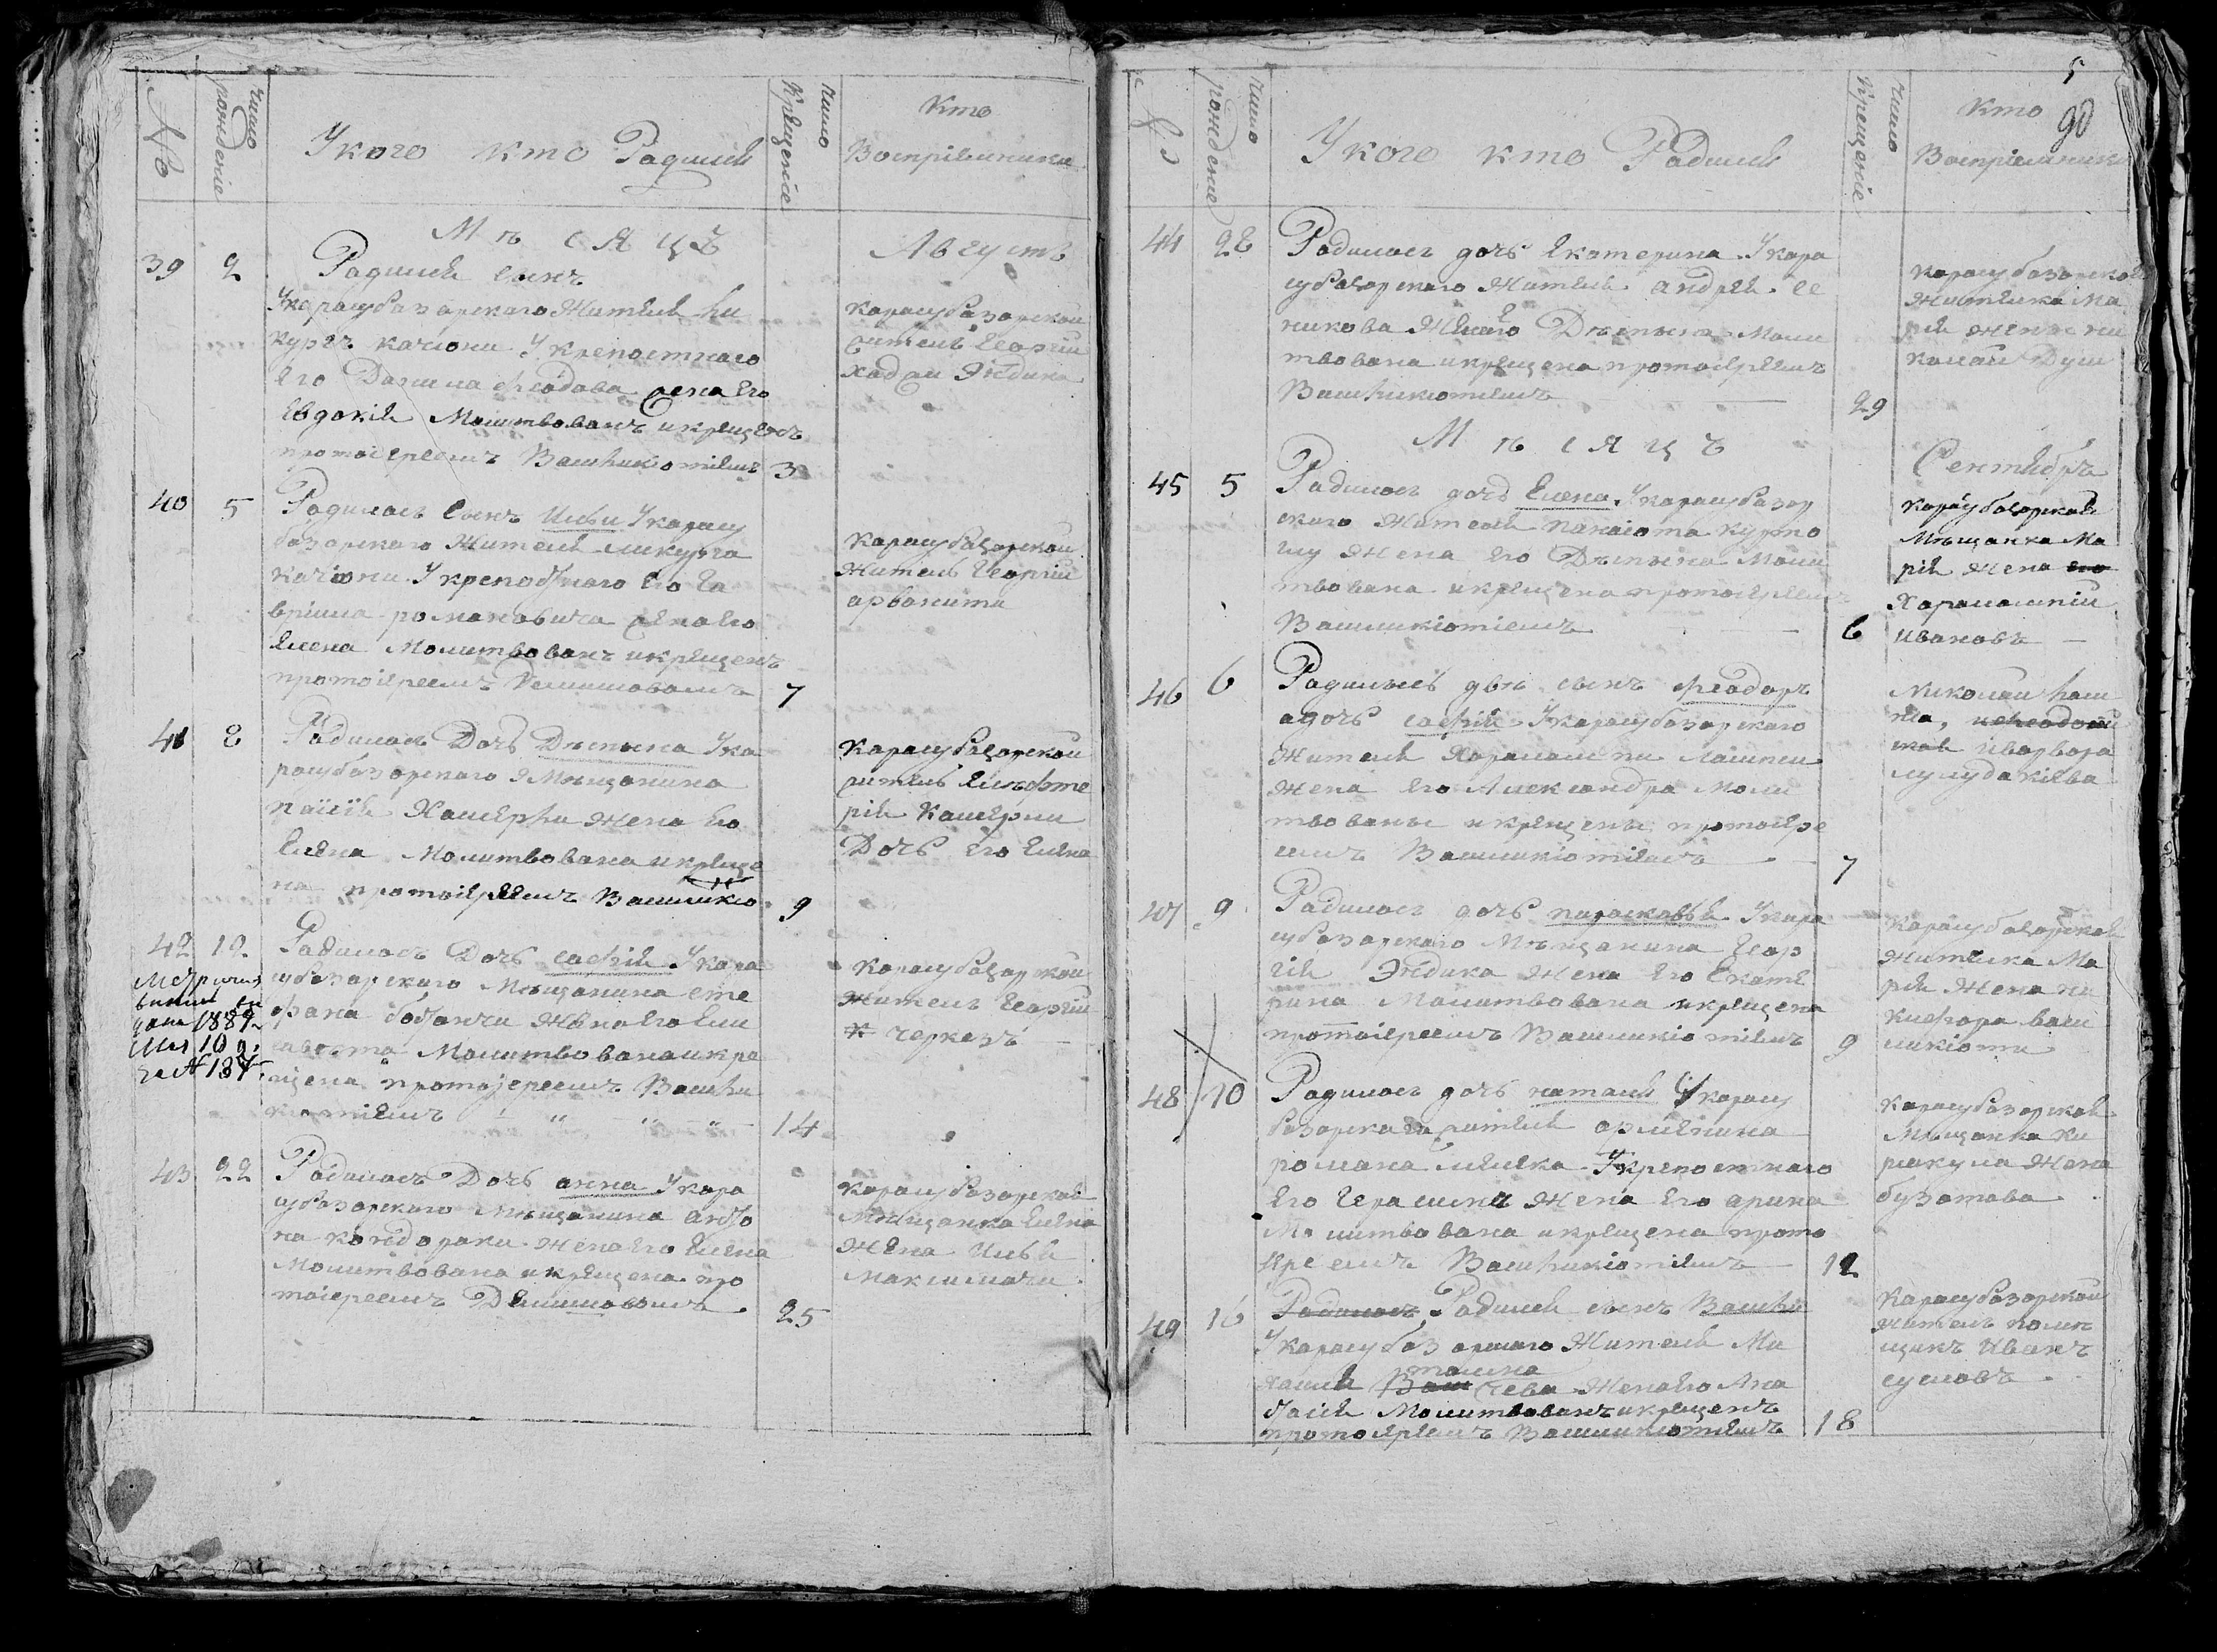 №
число рождение
У кого кто Радился
число Крещение
Кто
Воспріемники
Мѣсяцъ
Августъ
39
2
Радился сынъ
У карасубазарскаго Жителя ли
кургъ качіони У крепостнаго
Его Данила феодова жена Его
Евдокія Молитвованъ и крещенъ
протоіереемъ Василикіотіемъ
3
карасубазарской
житель Георгіи
хаджи
40
5
Радилась сынъ Илья У карасу
базарскаго Жителя ликурга
качіони У крепостнаго Его Га
вріила романовича жена Его
Елена Молитвованъ и крещенъ
протоіереемъ
7
Карасубазарской
Житель Георгіи
арванити
41
8
Радилась Дочь Деспина У ка
расубазарскаго Мѣщанина
жена Его
Елена Молитвована и креще
на протоіереемъ Василикіо
9
Карасубазарской
житель Елефте
рія
Дочь Его Елена
42
12
Радилась Дочь софія У кара
субазарскаго Мѣщанина сте
фана жена Его Ели
савета Молитвована и кре
щена протоіереемъ Васили
кіотіемъ " " "
14
Карасубазарской
Житель Георгіи
черкезъ
1889
10
187
43
22
Радилась Дочь анна У кара
субазарскаго Мѣщанина анто
на кондораки жена Его Елена
Молитвована и крещена про
тоіереемъ
25
Карасубазарская
Мѣщанка Елена
Жена Ильи
максимачи
5
90
№
число рождение
У кого кто Радился
число Крещеніе
Кто
Воспріемники
44
28
Радилась дочь Екатерина У кара
субазарскаго Жителя андрея се
никова Жена Его Деспина Моли
твована и крещена протоіереемъ
Василикіотіемъ
29
карасубазарская
жителка Ма
рія жена ни
колаи Дуси
Мѣсяцъ
Сентябръ
45
5
Радилась дочь Елена У карасубазар
скаго Жителя панаіота курто
глу жена Его Деспина Моли
твована и крещена протоіереемъ
Василикіотіемъ
6
карасубазарская
Мѣщанка Ма
рія жена его
Харалампіи
Ивановъ
46
6
Радились двѣ сынъ феодоръ
а дочь софія У карасубазарскаго
Жителя Харалампи
жена Его Александра Моли
твованы и крещены протоіере
емъ Василикіотіемъ
7
Николаи
и варвара
лулудакіева
47
9
Радилась дочь параскевія У кара
субазарскаго Мѣщанина Геор
гія жена Его Екате
рина Молитвована и крещена
протоіереемъ Василикіотіемъ
9
карасубазарская
жителка Ма
рія жена ни
кифора васи
ликіоти
48
10
Радилась дочь наталія У карасу
базарскаго жителя арменина
романа У крепостнаго
Его Герасима жена Его арина
Молитвована и крещена прото
іереемъ Василикіотіемъ
12
карасубазарская
Мѣщанка ки
ракула жена
бузотова
49
16
Радилась Радился сынъ Василіи
У карасубазарскаго Жителя Ми
хаила жена Его Ана
стасія Молитвованъ и крещенъ
протоіереемъ Василикіотіемъ
18
карасубазарской
житель помѣ
щикъ Иванъ
сумовъ